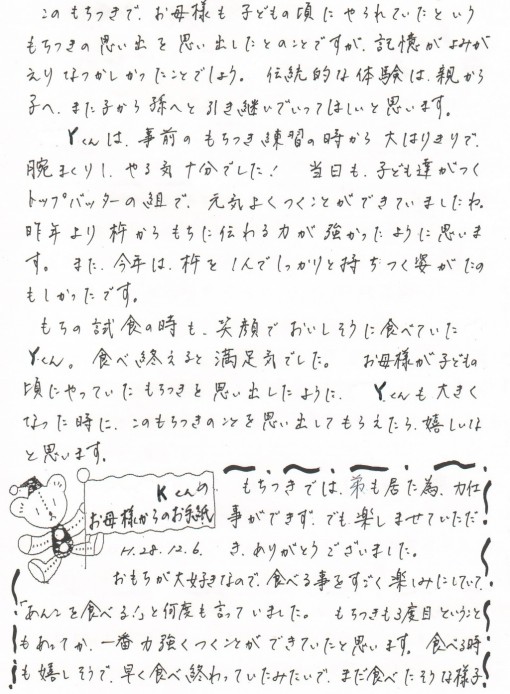 このもちつきで、お母様も子どもの頃にやられていたという
もちつきの思い出を思い出したとのことですが、記憶がよみが
えりなつかしかったことでしょう。 伝統的な体験は、親から
子へ、また子から孫へと引き継いでいってほしいと思います。
Yくんは、事前のもちつき練習の時から大はりきりで、
腕まくりし、やる気十分でした! 当日も、子ども達がつく
トップバッターの組で、元気よくつくことができていましたね。
昨年より杵からもちに伝わる力が強かったように思いま
す。 また、今年は、杵を1人でしっかりと持ちつく姿がたの
もしかったです。
もちの試食の時も、笑顔でおいしそうに食べていた
Yくん。 食べ終えると満足気でした。 お母様が子どもの
頃にやっていたもちつきを思い出したように、 Yくんも大きく
なった時に、このもちつきのことを思い出してもらえたら、嬉しいな
と思います。
Kくんの
お母様からのお手紙
H.28.12.6.
もちつきでは、弟も居た為、力仕
事ができず、でも楽しませていただ
き、ありがとうございました。
おもちが大好きなので、食べる事をすごく楽しみにしていて、
「あんこを食べる!」と何度も言っていました。 もちつきも3度目ということ
もあってか、一番力強くつくことができていたと思います。 食べる時
も嬉しそうで、早く食べ終わっていたみたいで、まだ食べたそうな様子